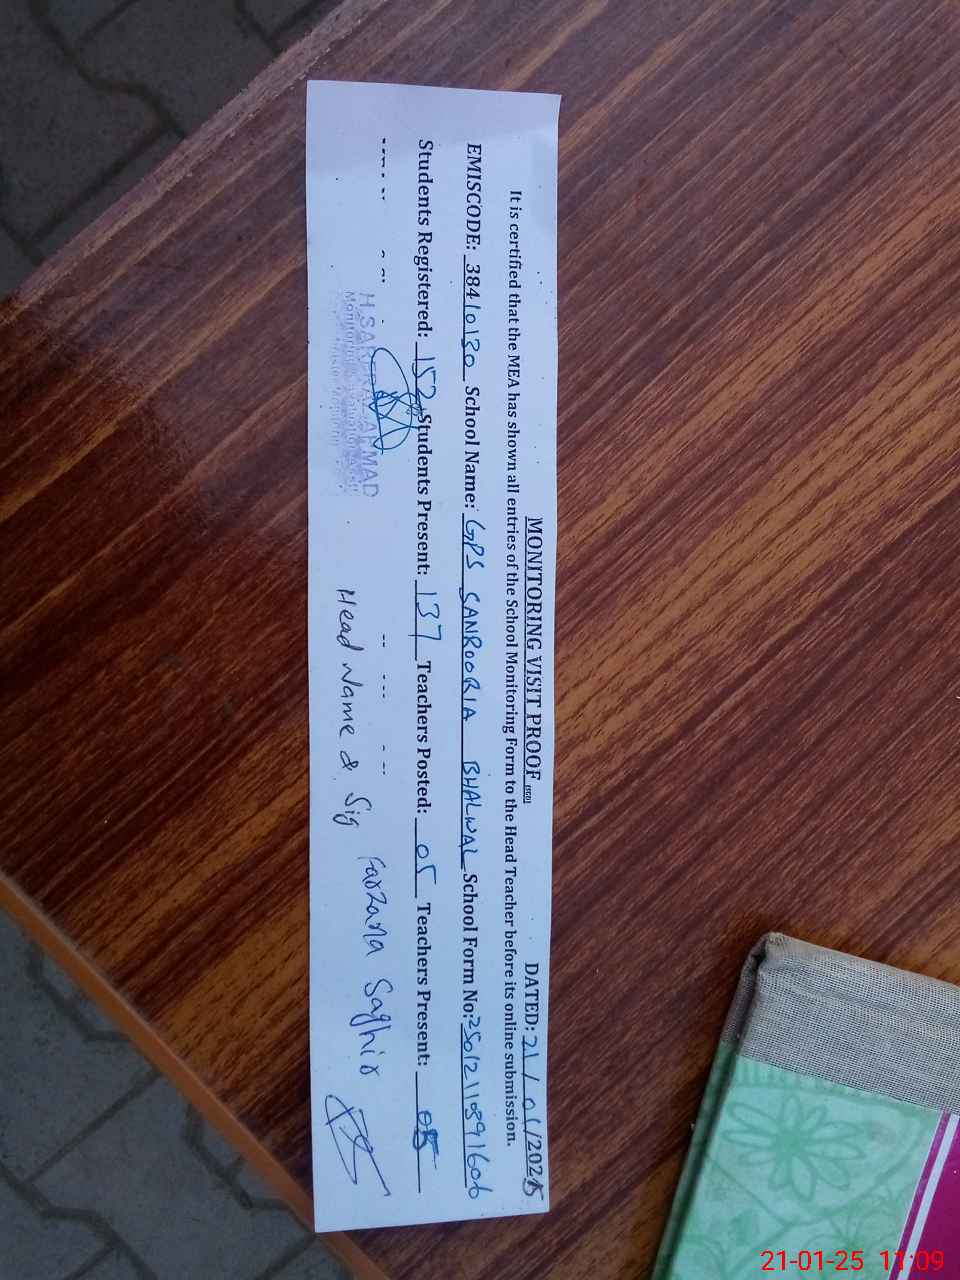 MONITORING VISIT PROOF DATED: 21/01/2025
It is certified that the MEA has shown all entries of the School Monitoring Form to the Head Teacher before its online submission.
EMISCODE: 38410130 School Name: GPS SANROORIA BHALWAL School Form No:
Students Registered: 152 Students Present: 137 Teachers Posted: 05 Teachers Present: 05
AHMAD
Head Name & Sig Farzana Saghir
21-01-25 11:09